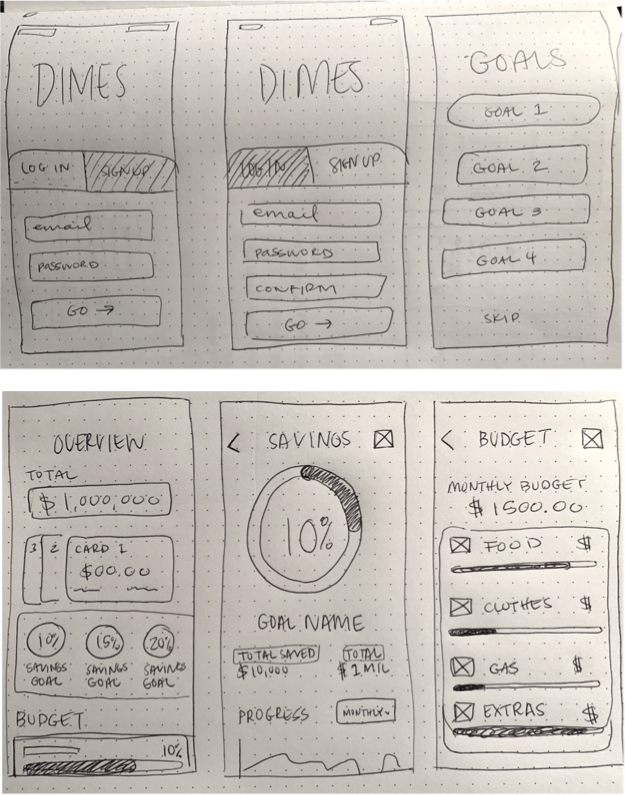 DIMES
LOG IN SIGN UP
email
PASSWORD
GO →
DIMES
LOG IN SIGN UP
email
PASSWORD
CONFIRM
GO →
GOALS
GOAL 1
GOAL 2
GOAL 3
GOAL 4
SKIP
OVERVIEW
TOTAL
$1,000,000
3 2 CARD 1
$00.00
10% 15% 20%
SAVINGS GOAL SAVINGS GOAL SAVINGS GOAL
BUDGET
10%
< SAVINGS
10%
GOAL NAME
TOTAL SAVED TOTAL
$10,000 $1 MIL
PROGRESS MONTHLY
< BUDGET
MONTHLY BUDGET
$1500.00
FOOD $
CLOTHES $
GAS $
EXTRAS $